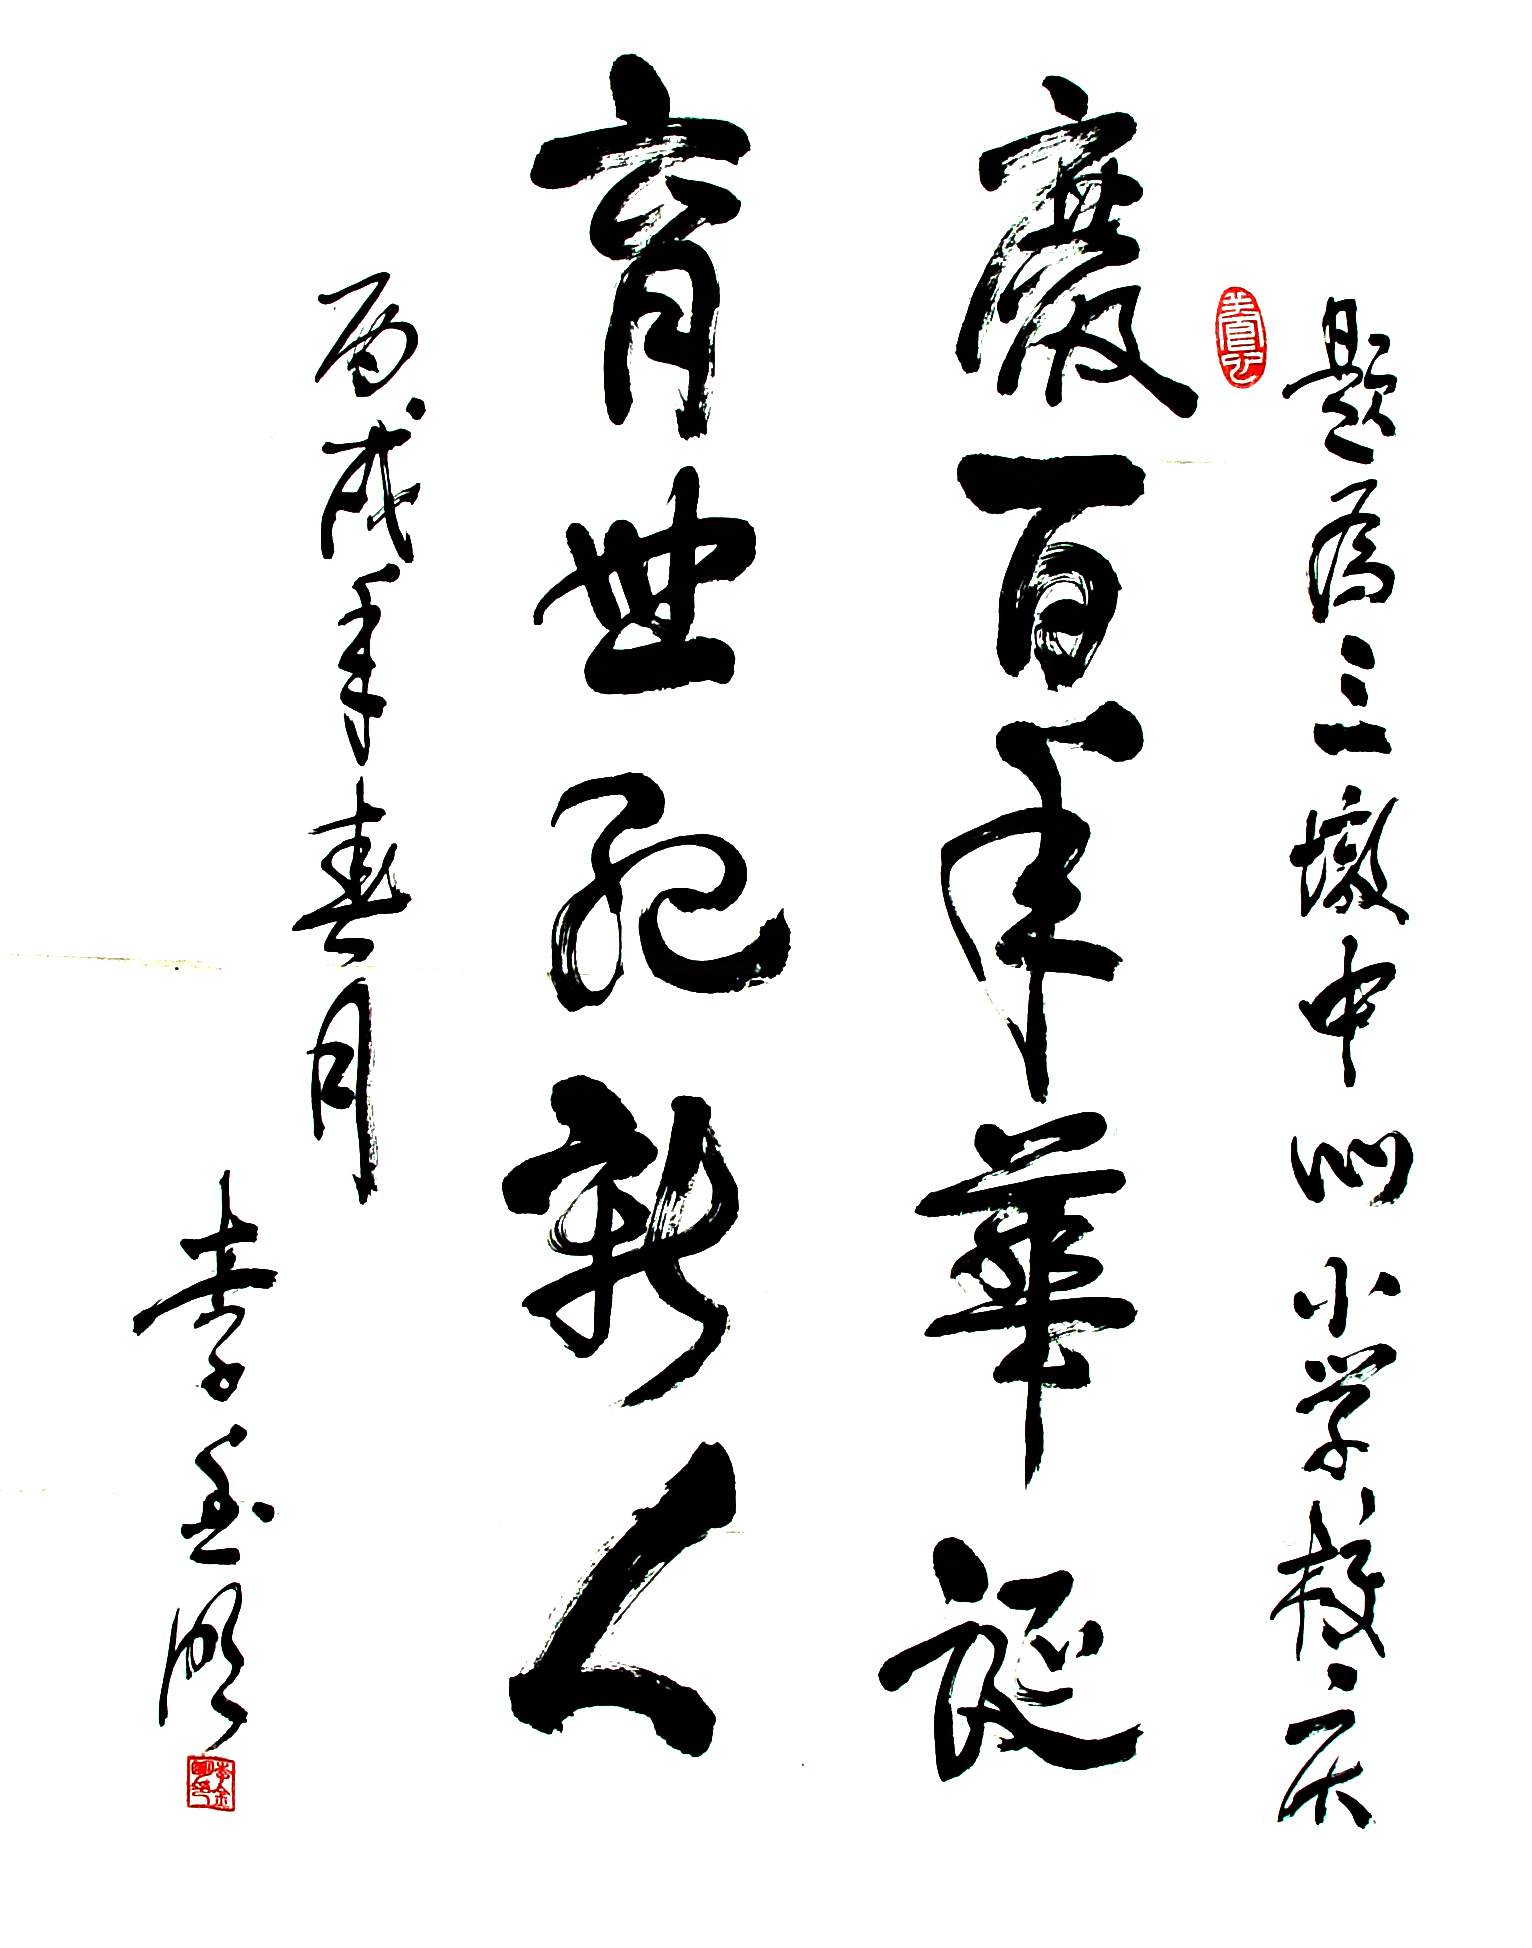 题为三墩中心小学校庆
慶百年華诞
育世纪新人
丙戌年春月
李金明